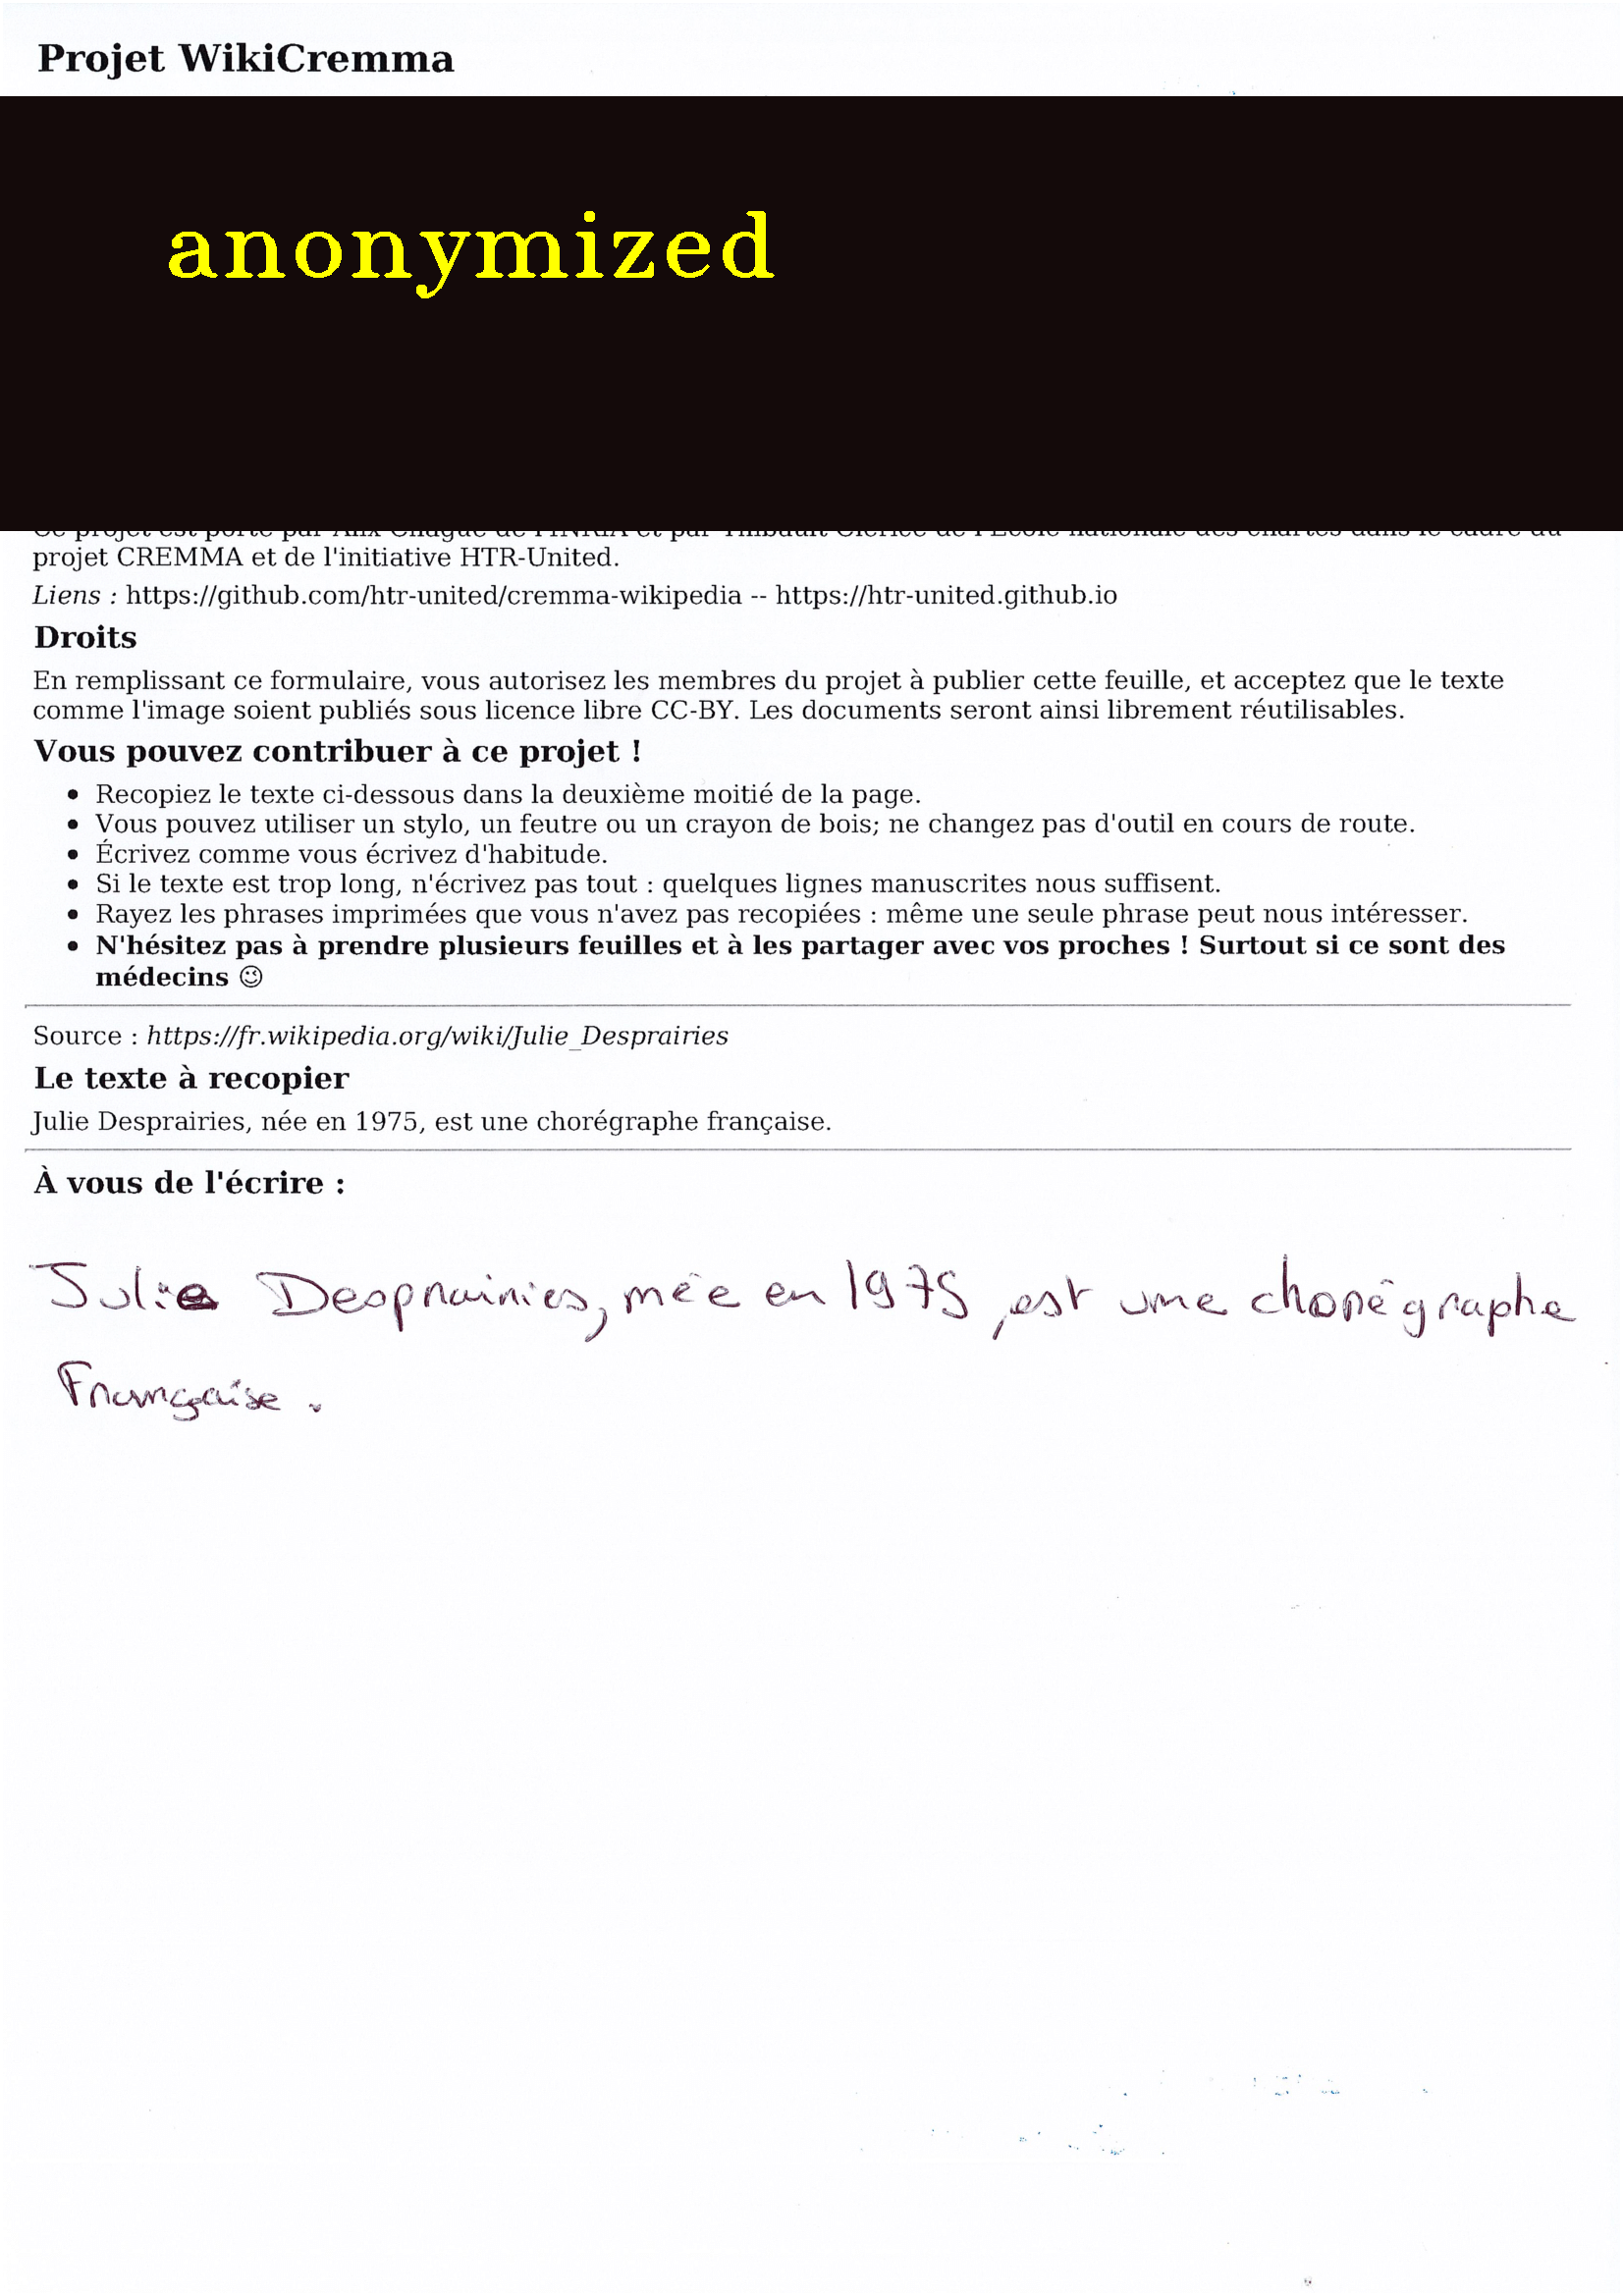 Projet WikiCremma
anonymized
Ce projet est porté par Alix Chagué de l'INRIA et par Thibault Clérice de l'École nationale des chartes dans le cadre du
projet CREMMA et de l'initiative HTR-United.
Liens : https://github.com/htr-united/cremma-wikipedia -- https://htr-united.github.io
Droits
En remplissant ce formulaire, vous autorisez les membres du projet à publier cette feuille, et acceptez que le texte
comme l'image soient publiés sous licence libre CC-BY. Les documents seront ainsi librement réutilisables.
Vous pouvez contribuer à ce projet !
• Recopiez le texte ci-dessous dans la deuxième moitié de la page.
• Vous pouvez utiliser un stylo, un feutre ou un crayon de bois; ne changez pas d'outil en cours de route.
• Écrivez comme vous écrivez d'habitude.
• Si le texte est trop long, n'écrivez pas tout : quelques lignes manuscrites nous suffisent.
• Rayez les phrases imprimées que vous n'avez pas recopiées : même une seule phrase peut nous intéresser.
• N'hésitez pas à prendre plusieurs feuilles et à les partager avec vos proches ! Surtout si ce sont des
médecins 😉
Source : https://fr.wikipedia.org/wiki/Julie_Desprairies
Le texte à recopier
Julie Desprairies, née en 1975, est une chorégraphe française.
À vous de l'écrire :
Julie Desprairies, née en 1975, est une chorégraphe
Française.